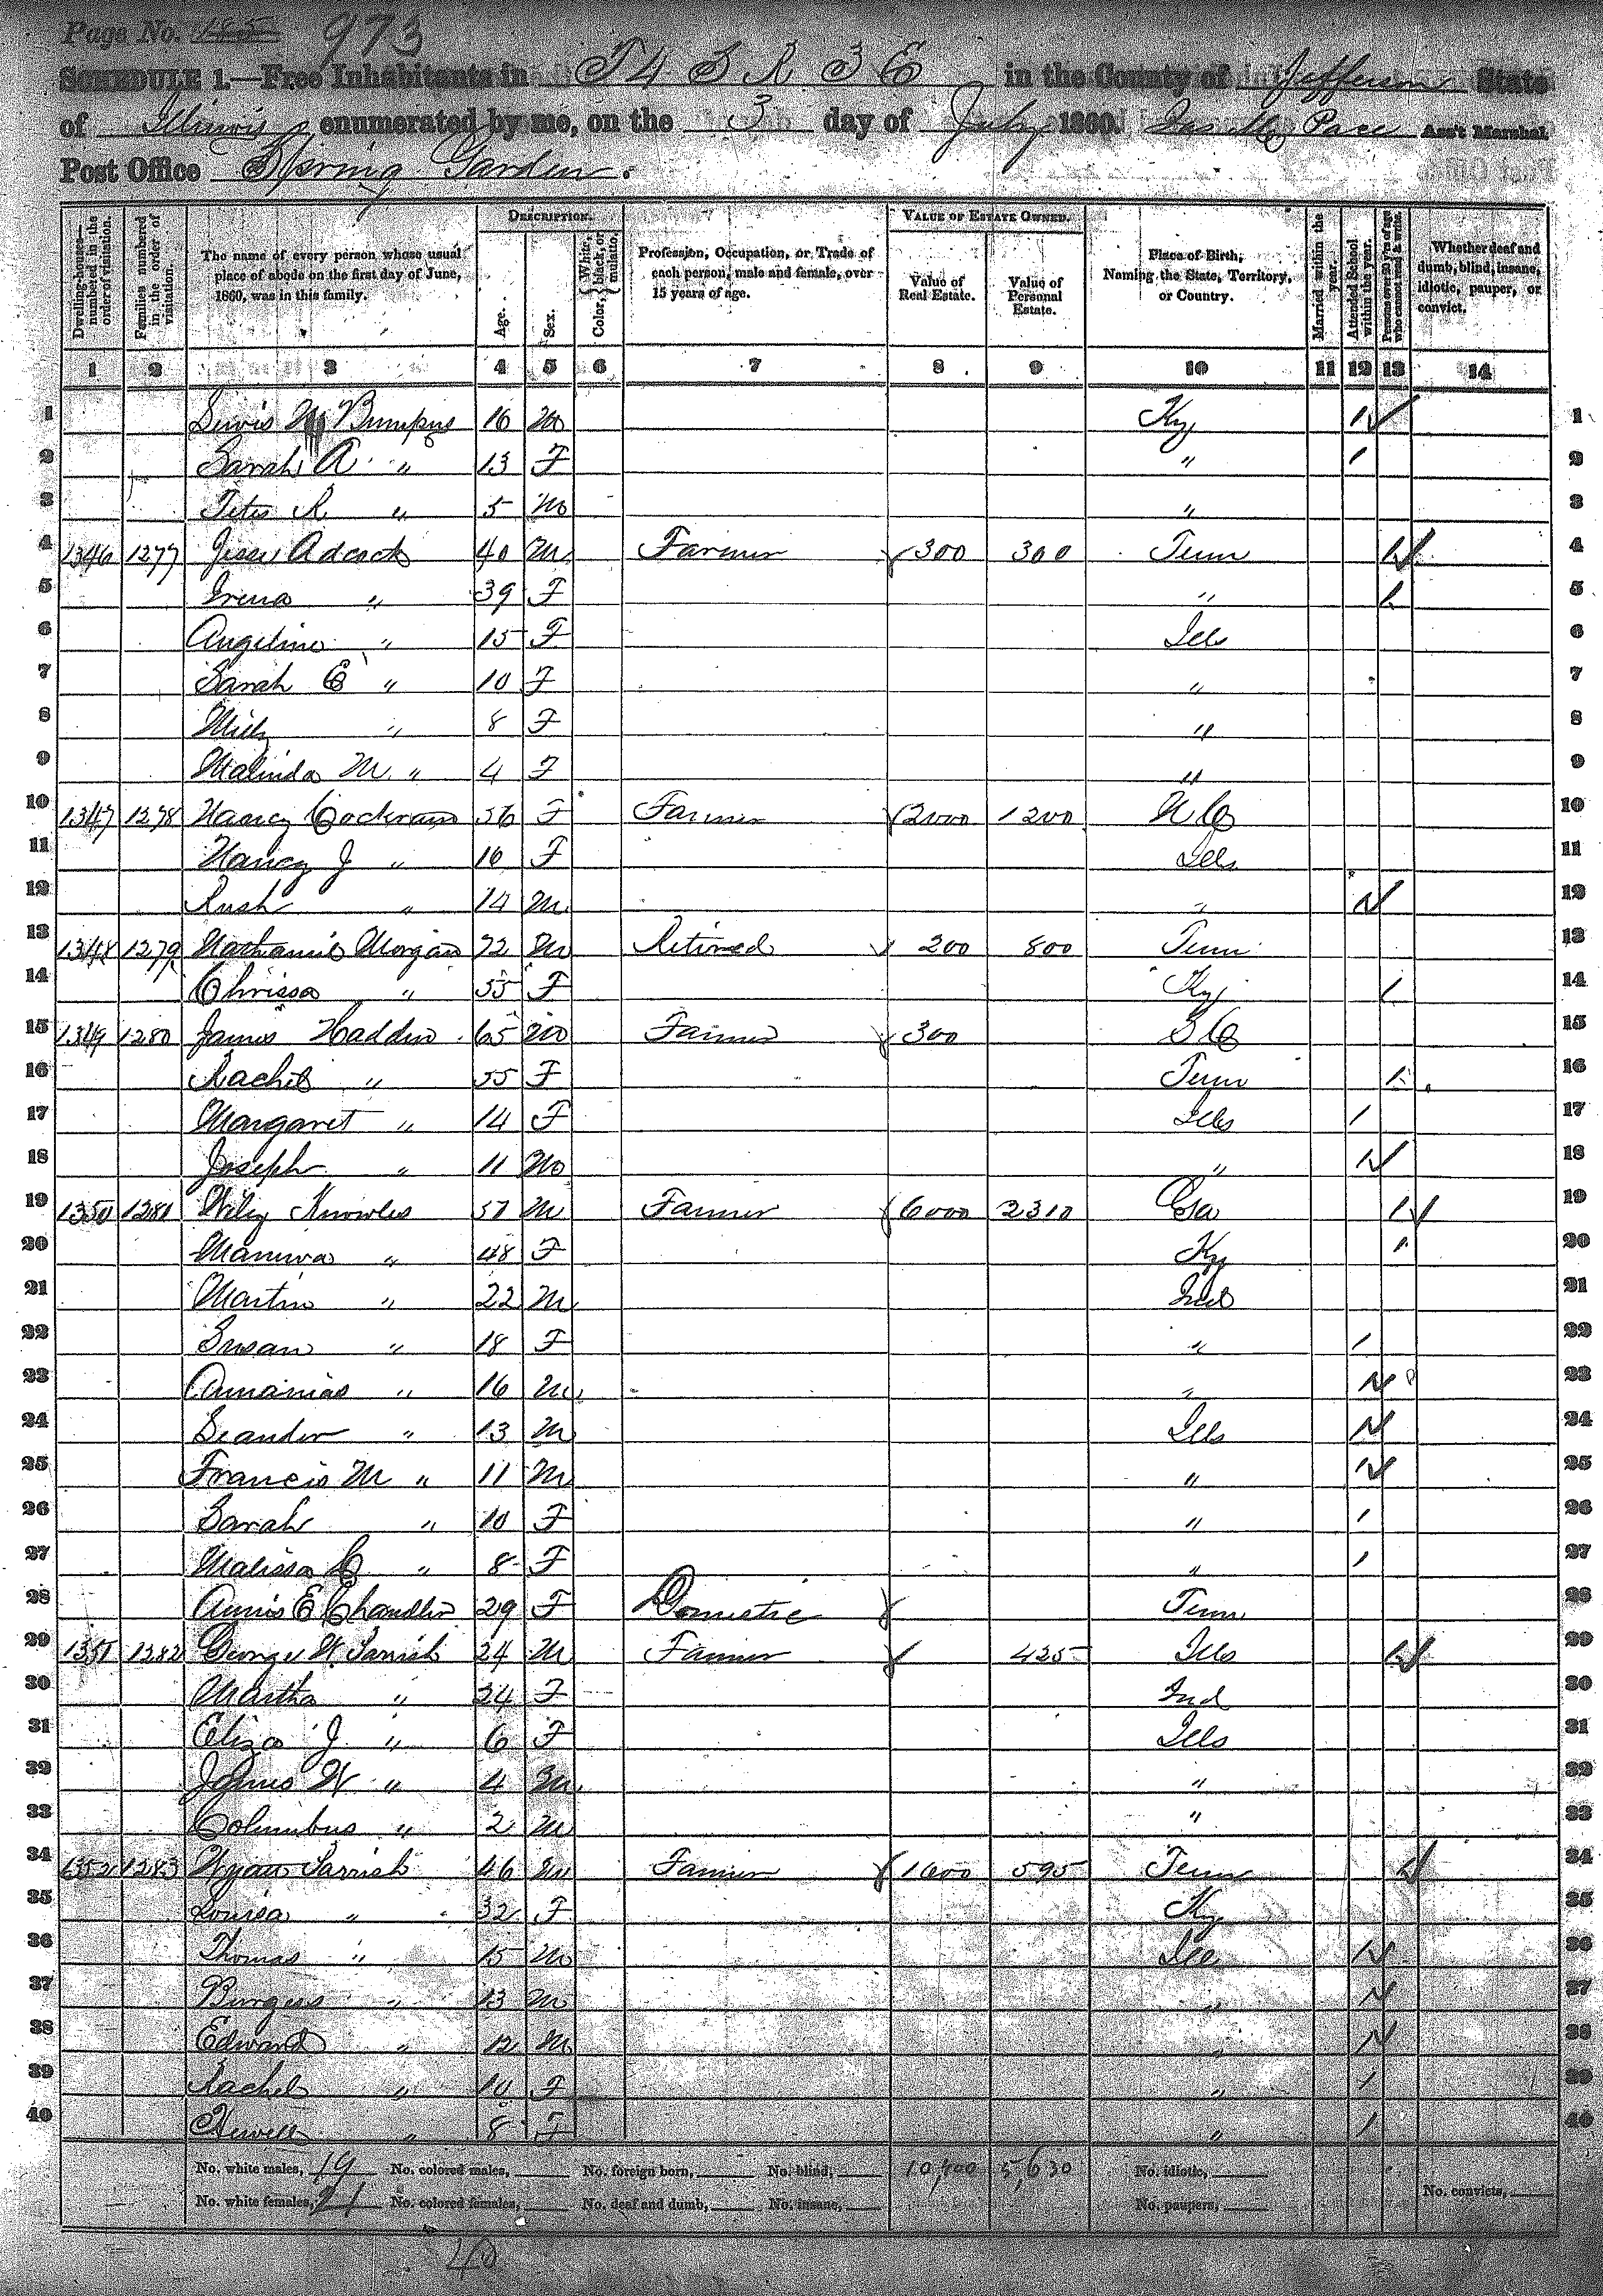 Page No. 185 973
SCHEDULE 1.—Free Inhabitants in T 4 S R 3 E in the County of Jefferson State
of Illinois enumerated by me, on the 3 day of July 1860. Jas M Pace Ass't Marshal.
Post Office Spring Garden.
Dwelling-houses—numbered in the order of visitation. Families numbered in the order of visitation. The name of every person whose usual place of abode on the first day of June, 1860, was in this family. DESCRIPTION. Age. Sex. Color, {White, black, or mulatto. Profession, Occupation, or Trade of each person, male and female, over 15 years of age. VALUE OF ESTATE OWNED. Value of Real Estate. Value of Personal Estate. Place of Birth, Naming the State, Territory, or Country. Married within the year. Attended School within the year. Persons over 20 y'rs of age who cannot read & write. Whether deaf and dumb, blind, insane, idiotic, pauper, or convict.
1 2 3 4 5 6 7 8 9 10 11 12 13 14
1 Lewis M Bumpus 16 M Ky 1 1
2 Sarah A " 13 F " 1 2
3 Titus R " 5 M " 3
4 1346 1277 Jesse Adcock 40 M Farmer 300 300 Tenn 1 4
5 Irena " 39 F " 1 5
6 Angeline " 15 F Ills 6
7 Sarah E " 10 F " 7
8 Milly " 8 F " 8
9 Malinda M " 4 F " 9
10 1347 1278 Nancy Cockram 56 F Farmer 2000 1200 N C 10
11 Nancy J " 16 F Ills 11
12 Rush " 14 M " 1 12
13 1348 1279 Nathaniel Morgan 72 M Retired 200 800 Tenn 13
14 Chrissa " 55 F Ky 1 14
15 1349 1280 James Hadden 65 M Farmer 300 S C 15
16 Rachel " 55 F Tenn 1 16
17 Margaret " 14 F Ills 1 17
18 Joseph " 11 M " 1 18
19 1350 1281 Wiley Knowles 51 M Farmer 6000 2310 Ga 1 19
20 Manerva " 48 F Ky 1 20
21 Martin " 22 M Ind 21
22 Susan " 18 F " 1 22
23 Amanias " 16 M " 1 23
24 Leander " 13 M Ills 1 24
25 Francis M " 11 M " 1 25
26 Sarah " 10 F " 1 26
27 Malissa C " 8 F " 1 27
28 Annis E Chandler 29 F Domestic Tenn 28
29 1351 1282 George W. Parrish 24 M Farmer 425 Ills 1 29
30 Martha " 24 F Ind 30
31 Eliza J " 6 F Ills 31
32 James W " 4 M " 32
33 Columbus " 2 M " 33
34 1352 1283 Wyatt Parrish 46 M Farmer 1600 595 Tenn 1 34
35 Louisa " 32 F Ky 35
36 Thomas " 15 M Ills 1 36
37 Burgess " 13 M " 1 37
38 Edward " 12 M " 1 38
39 Rachel " 10 F " 1 39
40 " 8 F " 1 40
No. white males, 19 No. colored males, No. foreign born, No. blind, 10,400 5,630 No. idiotic,
No. white females, 21 No. colored females, No. deaf and dumb, No. insane, No. paupers, No. convicts,
40